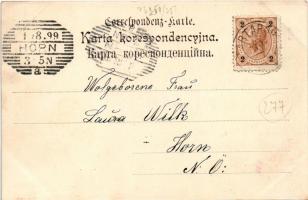 Correspondenz-Karte.
Karta korespondencyjna.
Карта кореспонденційна.
1 8.99
HORN
8 5N
2 2
Wolgeborene Frau
Laura Wilk
Horn
N. Ö.
277